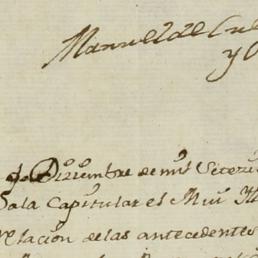 Manuel de
y
de Diziembre de mil Setez
Sala Capitular el Mui Il
relacion de las antecedentes